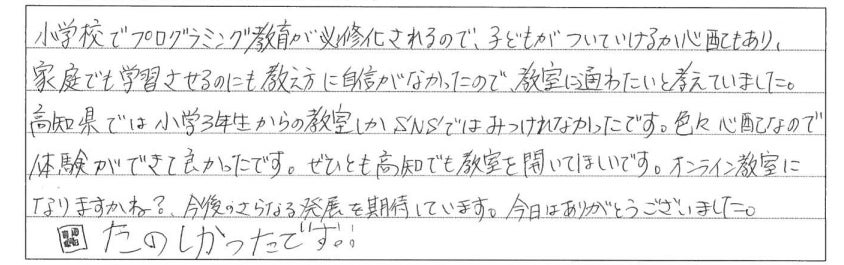 小学校でプログラミング教育が必修化されるので、子どもがついていけるか心配もあり、
家庭でも学習させるのにも教え方に自信がなかったので、教室に通わたいと考えていました。
高知県では小学3年生からの教室しかSNSではみつけれなかったです。色々心配なので
体験ができて良かったです。ぜひとも高知でも教室を開いてほしいです。オンライン教室に
なりますかね?、今後のさらなる発展を期待しています。今日はありがとうございました。
たのしかったです。!!